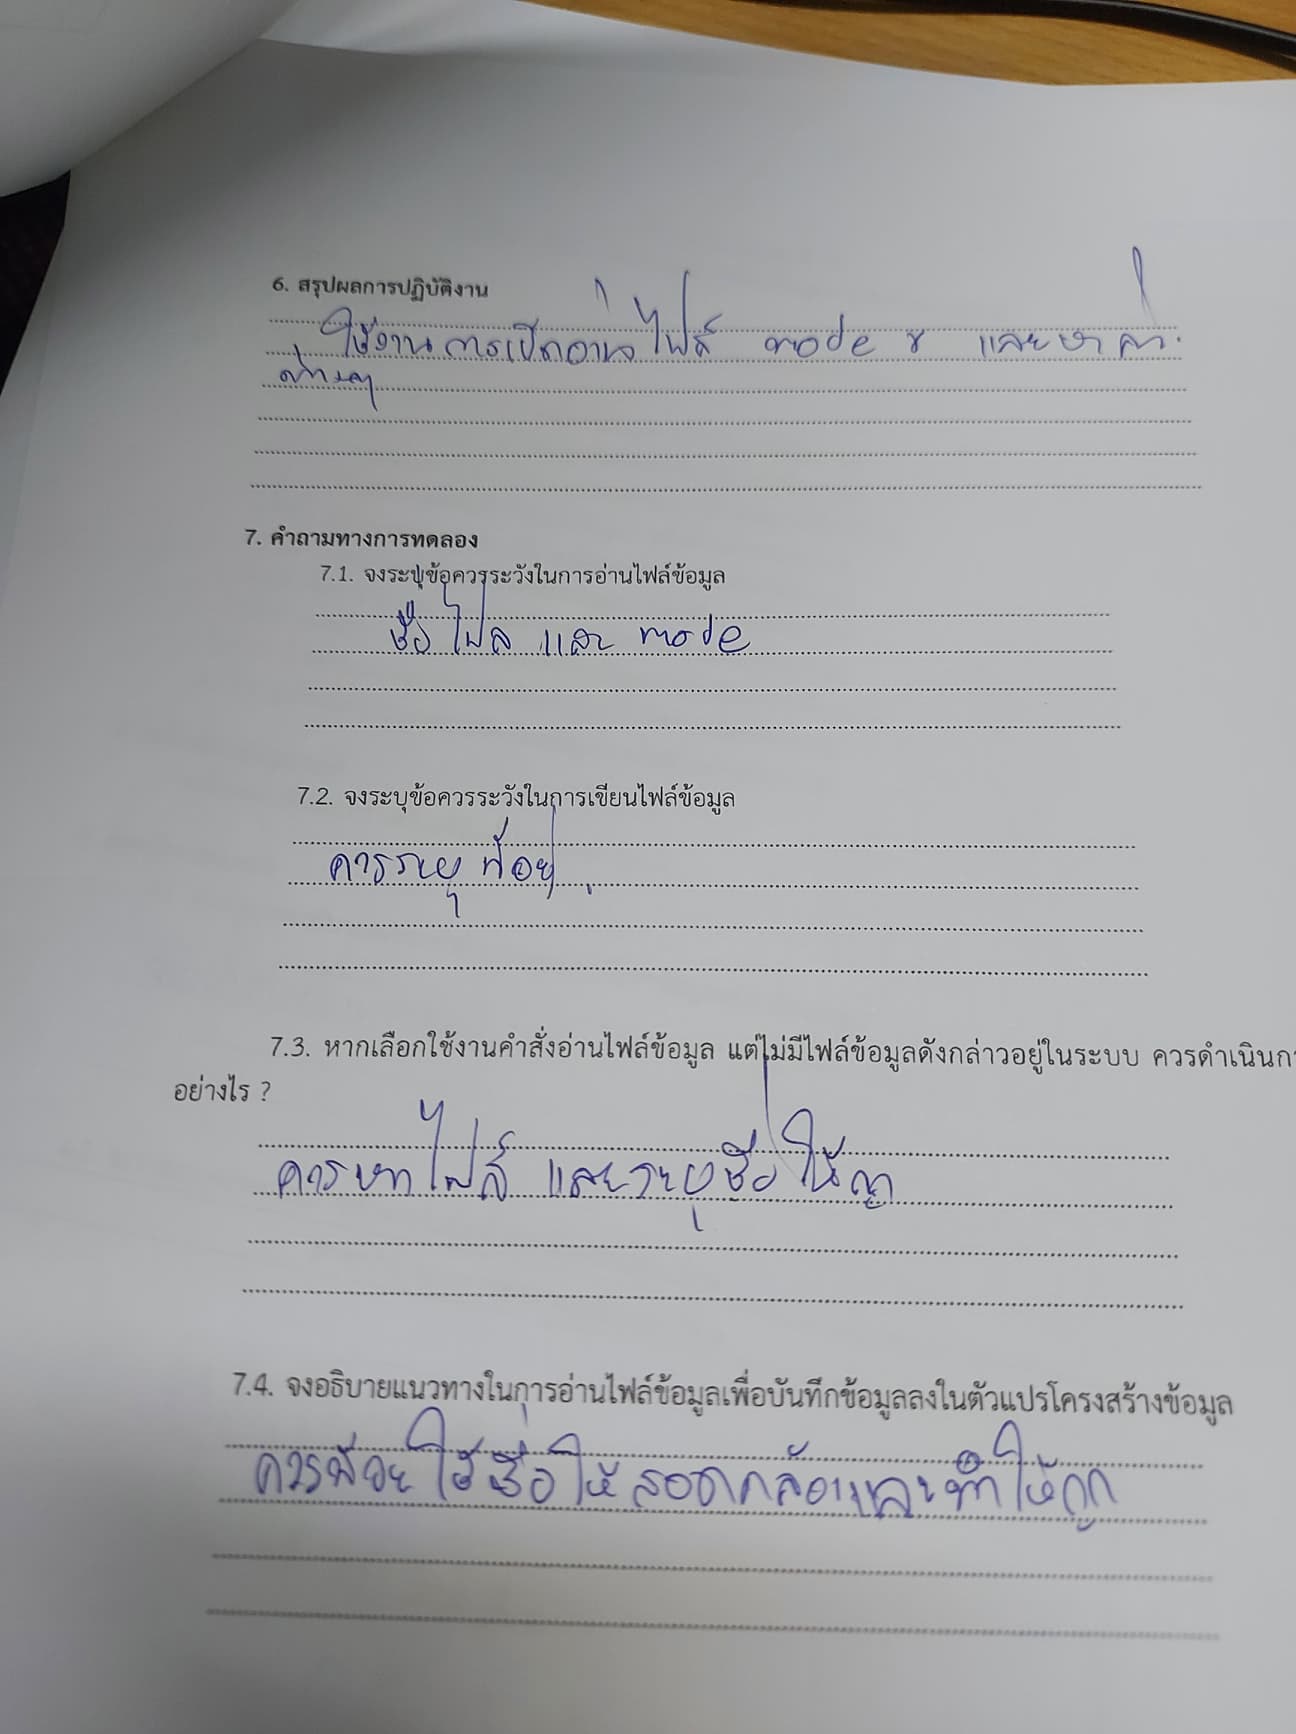 6. สรุปผลการปฏิบัติงาน
ใช้งานการเปิดอ่านไฟล์ mode r และหาค่า
ต่างๆ
7. คำถามทางการทดลอง
7.1. จงระบุข้อควรระวังในการอ่านไฟล์ข้อมูล
ชื่อไฟล และ mode
7.2. จงระบุข้อควรระวังในการเขียนไฟล์ข้อมูล
ควรระบุ ที่อยู่
7.3. หากเลือกใช้งานคำสั่งอ่านไฟล์ข้อมูล แต่ไม่มีไฟล์ข้อมูลดังกล่าวอยู่ในระบบ ควรดำเนินกา
อย่างไร ?
ควรหาไฟล์ และระบุชื่อให้
7.4. จงอธิบายแนวทางในการอ่านไฟล์ข้อมูลเพื่อบันทึกข้อมูลลงในตัวแปรโครงสร้างข้อมูล
ใช้ชื่อให้สอดคล้องและทำให้ถูก